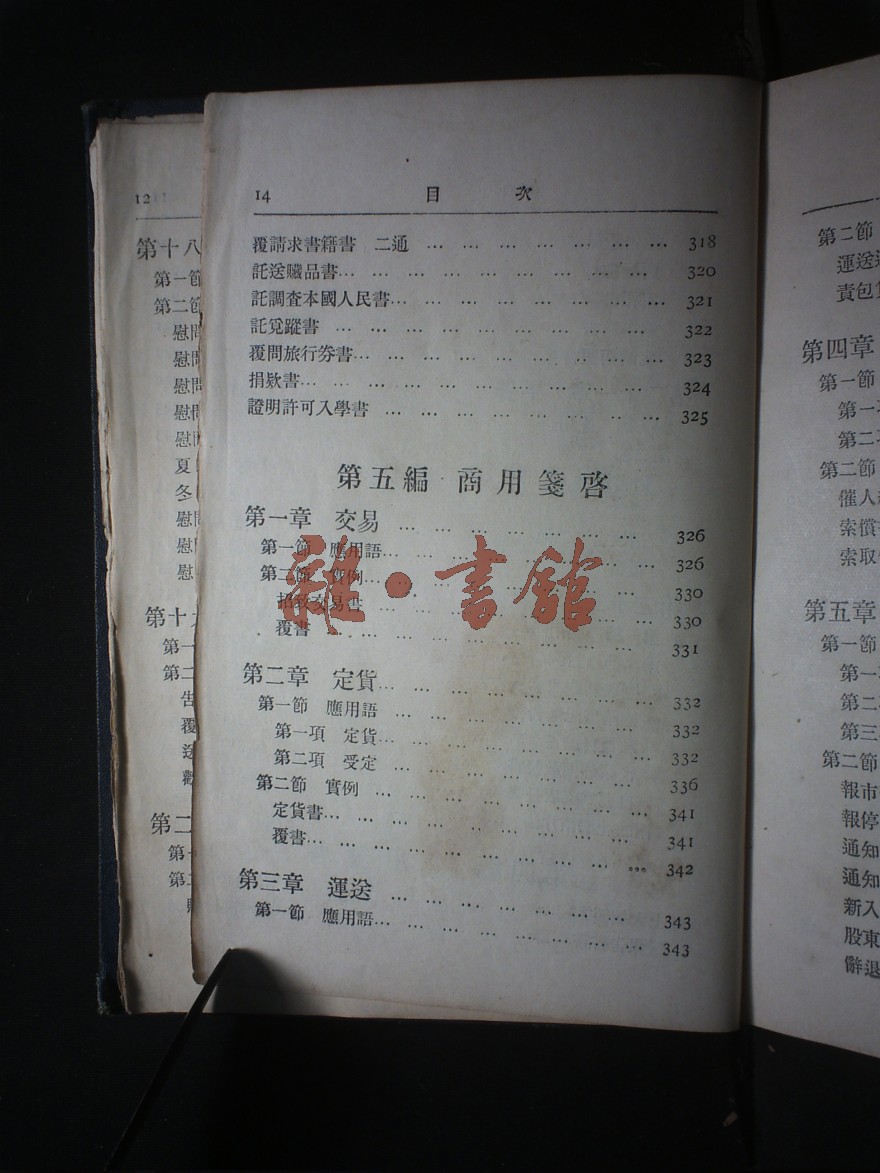 12
第十八
第一節
第二節
慰問
慰問
慰問
慰問
慰
夏
冬
慰問
慰
慰
第十九
第一
第二
告
覆
送
第二
第
第二
14 目次
覆請求書籍書 二通 … … … … … … … 318
託送贓品書… … … … … … … … 320
託調查本國人民書… … … … … … … 321
託覓蹤書 … … … … … … … … 322
覆問旅行券書… … … … … … … … 323
捐欵書… … … … … … … … … 324
證明許可入學書 … … … … … … … 325
第五編 商用箋啓
第一章 交易 … … … … … … … 326
第一節 應用語… … … … … … … 326
第二節 實例… … … … … … … 330
招致交易書 … … … … … … … 330
覆書… … … … … … … … … 331
第二章 定貨… … … … … … … … 332
第一節 應用語 … … … … … … … 332
第一項 定貨… … … … … … … 332
第二項 受定 … … … … … … … 336
第二節 實例 … … … … … … … 341
定貨書… … … … … … … … … 341
覆書… … … … … … … … … 342
第三章 運送 … … … … … … … 343
第一節 應用語… … … … … … … 343
雜·書館
第二節
運送
責包
第四章
第一節
第一項
第二項
第二節
催人
索償
索取
第五章
第一節
第一項
第二
第三
第二節
報市
報停
通知
通知
新入
股東
辭退